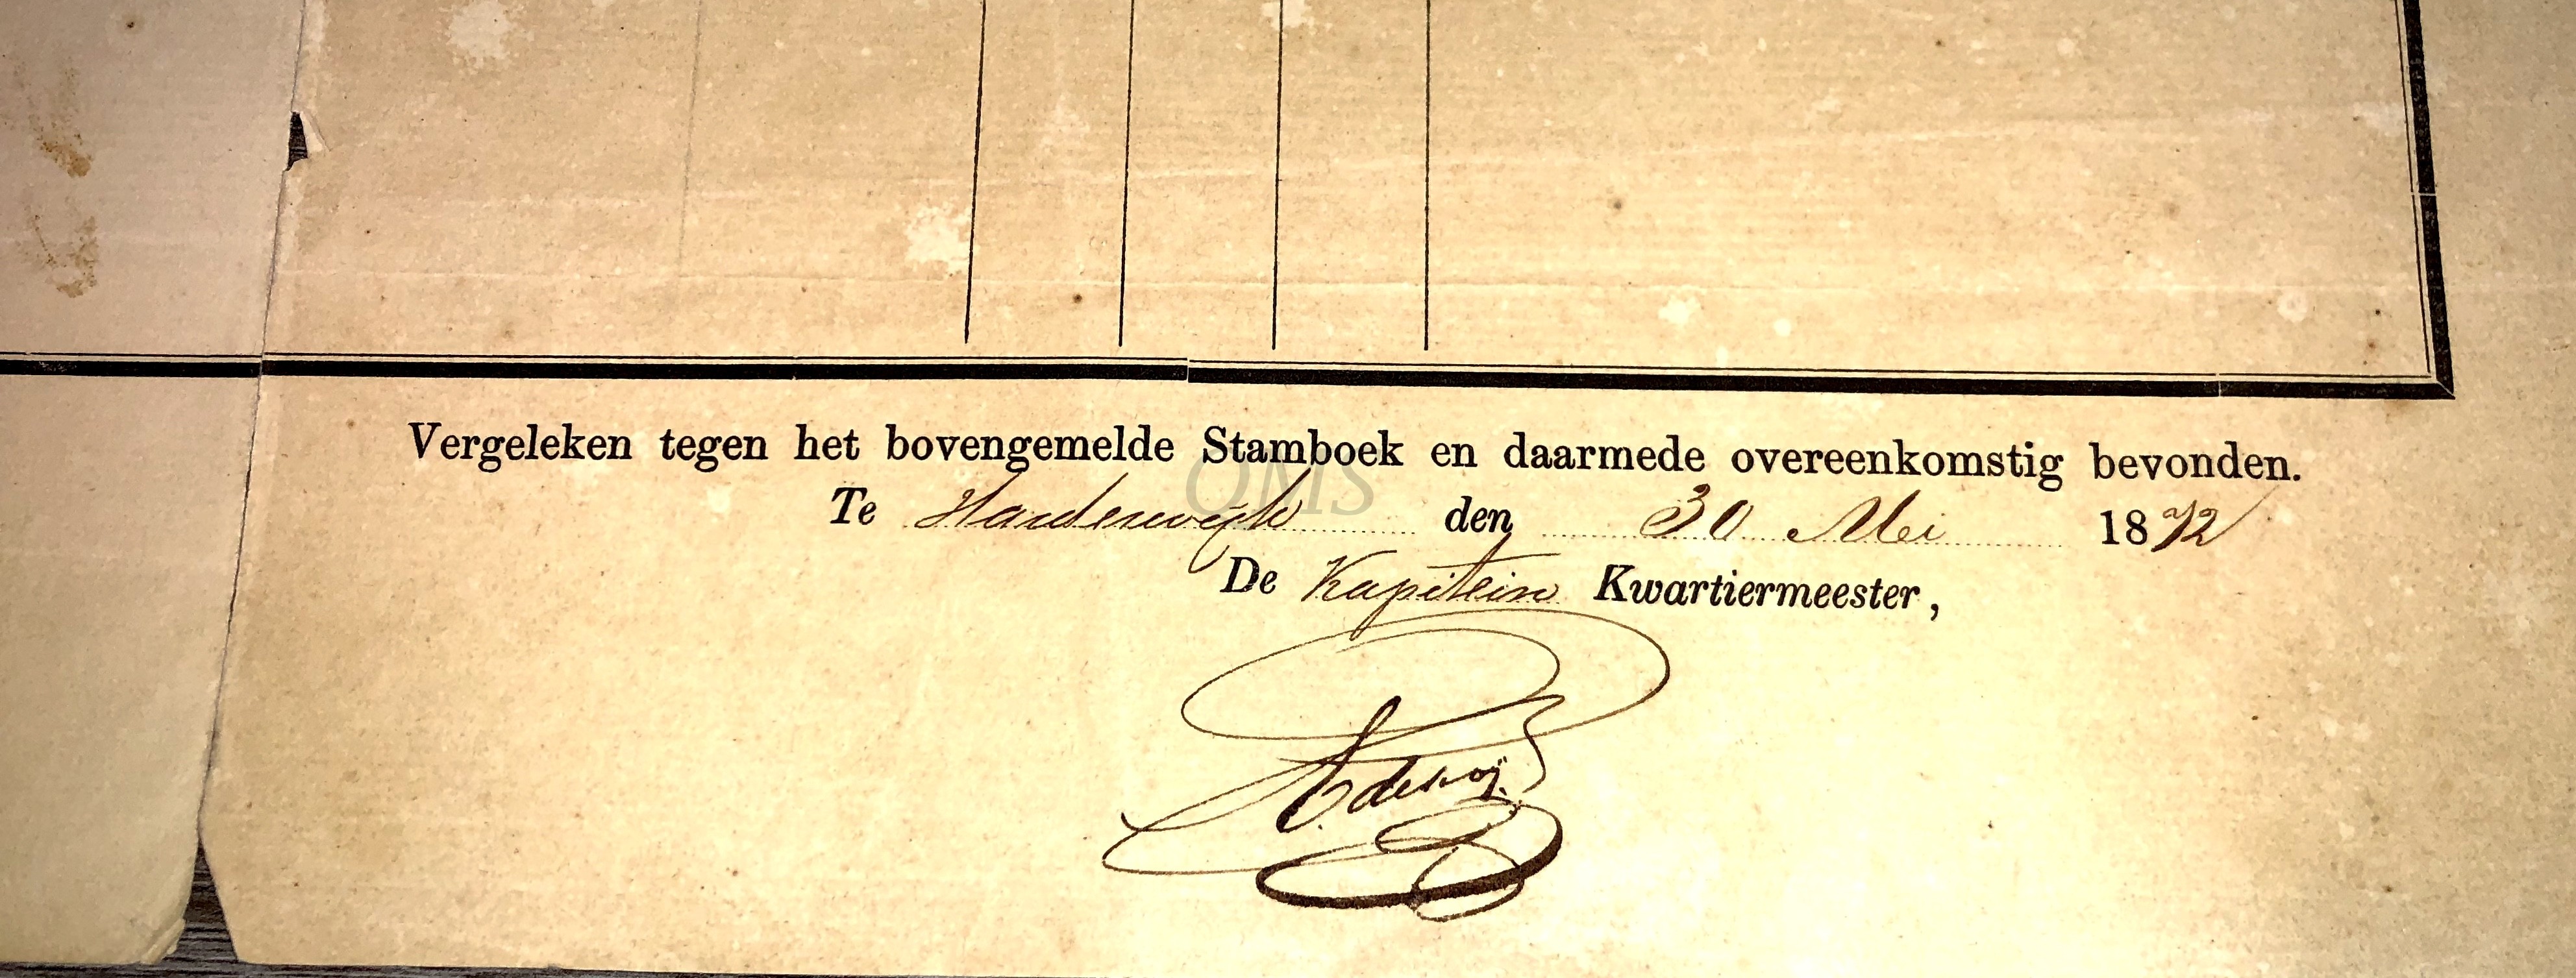 Vergeleken tegen het bovengemelde Stamboek en daarmede overeenkomstig bevonden.
QMS
Te Harderwijk den 30 Mei 1872
De Kapitein Kwartiermeester,